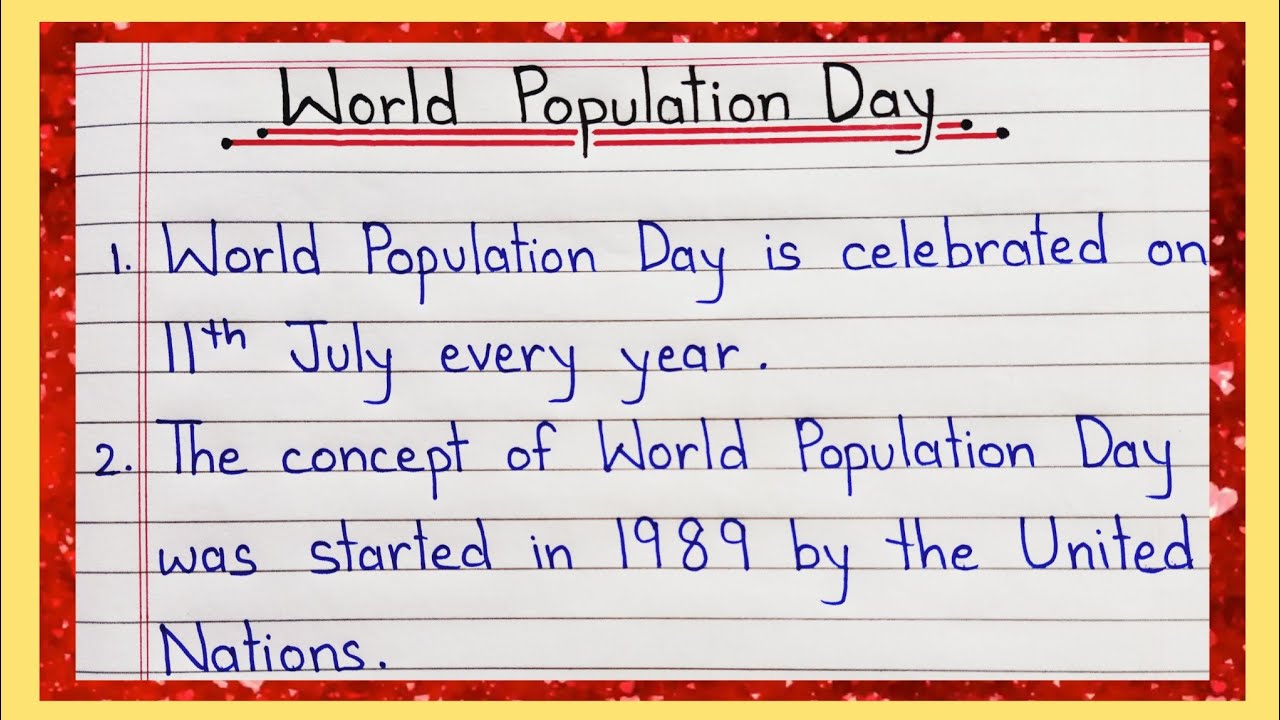 World Population Day.
1. World Population Day is celebrated on
11th July every year.
2. The concept of World Population Day
was started in 1989 by the United
Nations.